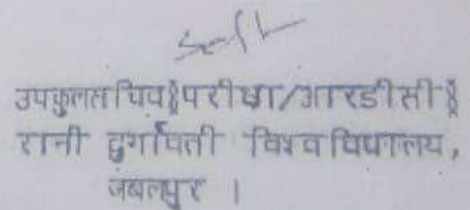 उपकुलसचिव (परीक्षा/आरडीसी)
रानी दुर्गावती विश्वविद्यालय,
जबलपुर ।